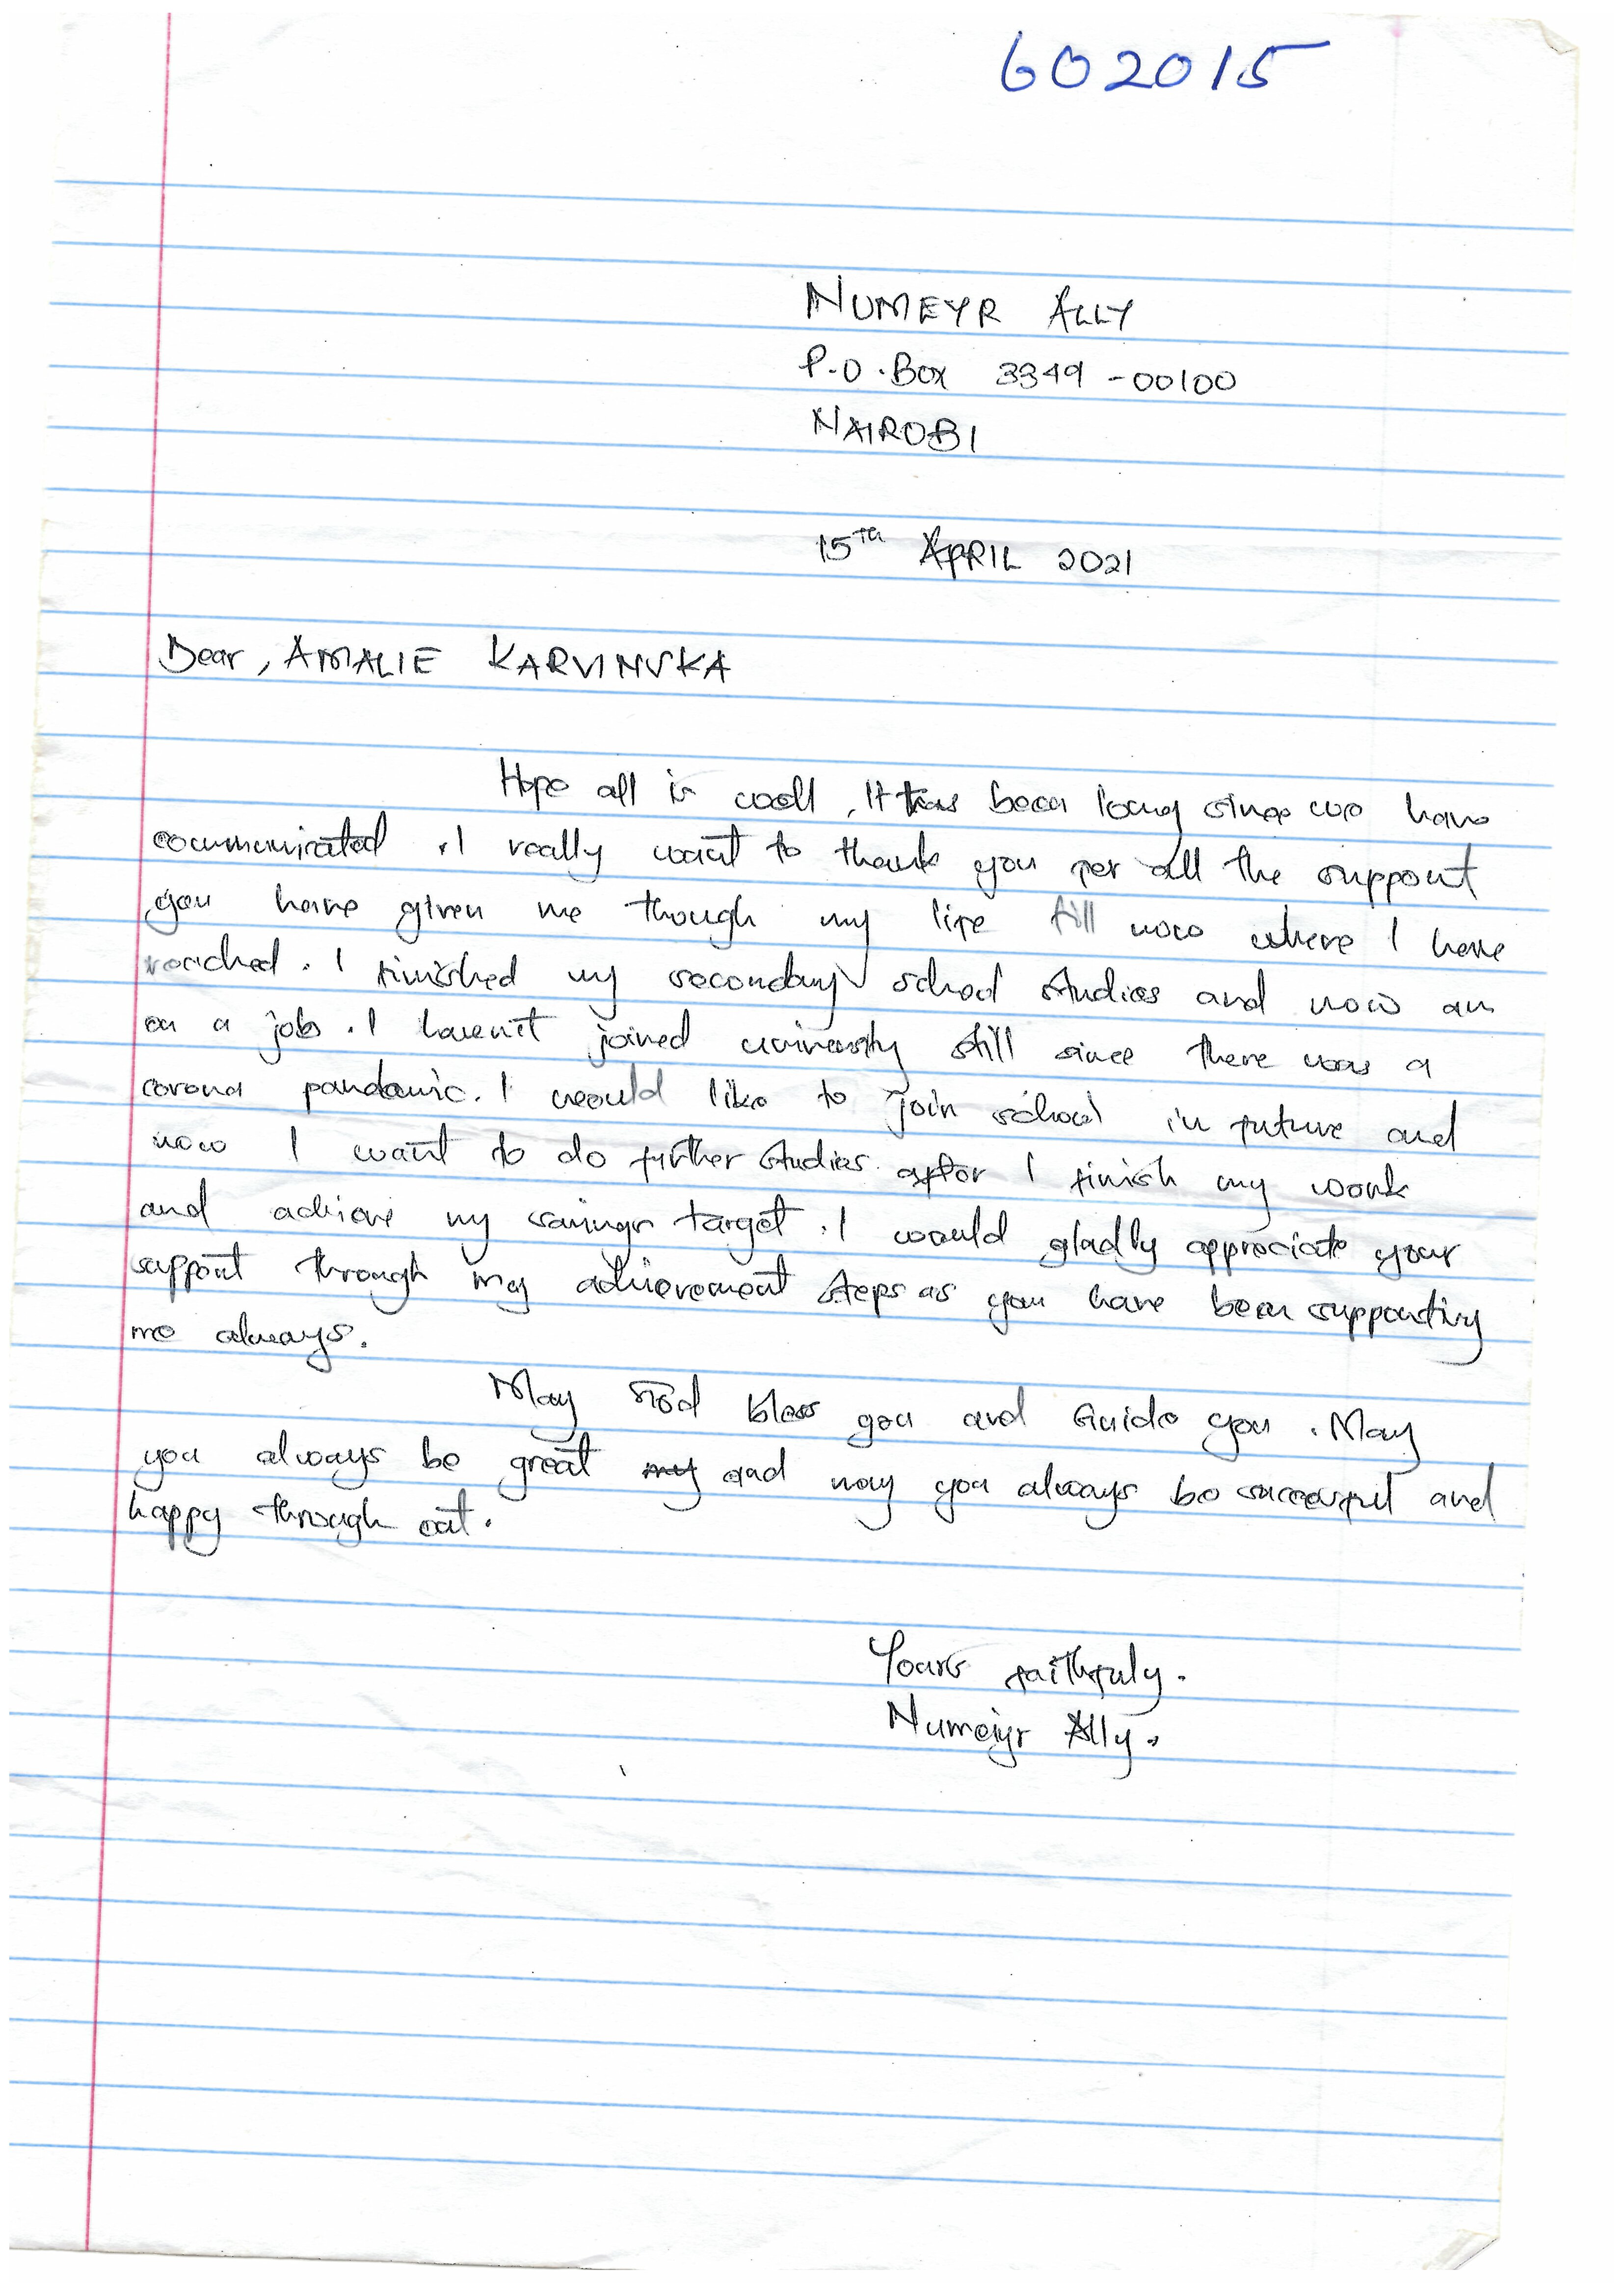 602015
NUMEYR ALLY
P.O.Box 3349-00100
NAIROBI
15TH APRIL 2021
Dear, AMALIE KARVINSKA
Hope all is well, It has been long since we have
communicated. I really want to thank you for all the support
you have given me though my life till now where I have
reached. I finished my secondary school studies and now am
on a job. I haven't joined university still since there was a
corona pandamic. I would like to join school in future and
now I want to do further studies after I finish my work
and achieve my savings target. I would gladly appreciate your
support through my achievement steps as you have been supporting
me always.
May God bless you and Guide you. May
you always be great my and may you always be successful and
happy through out.
Yours faithfuly.
Numeiyr Ally.